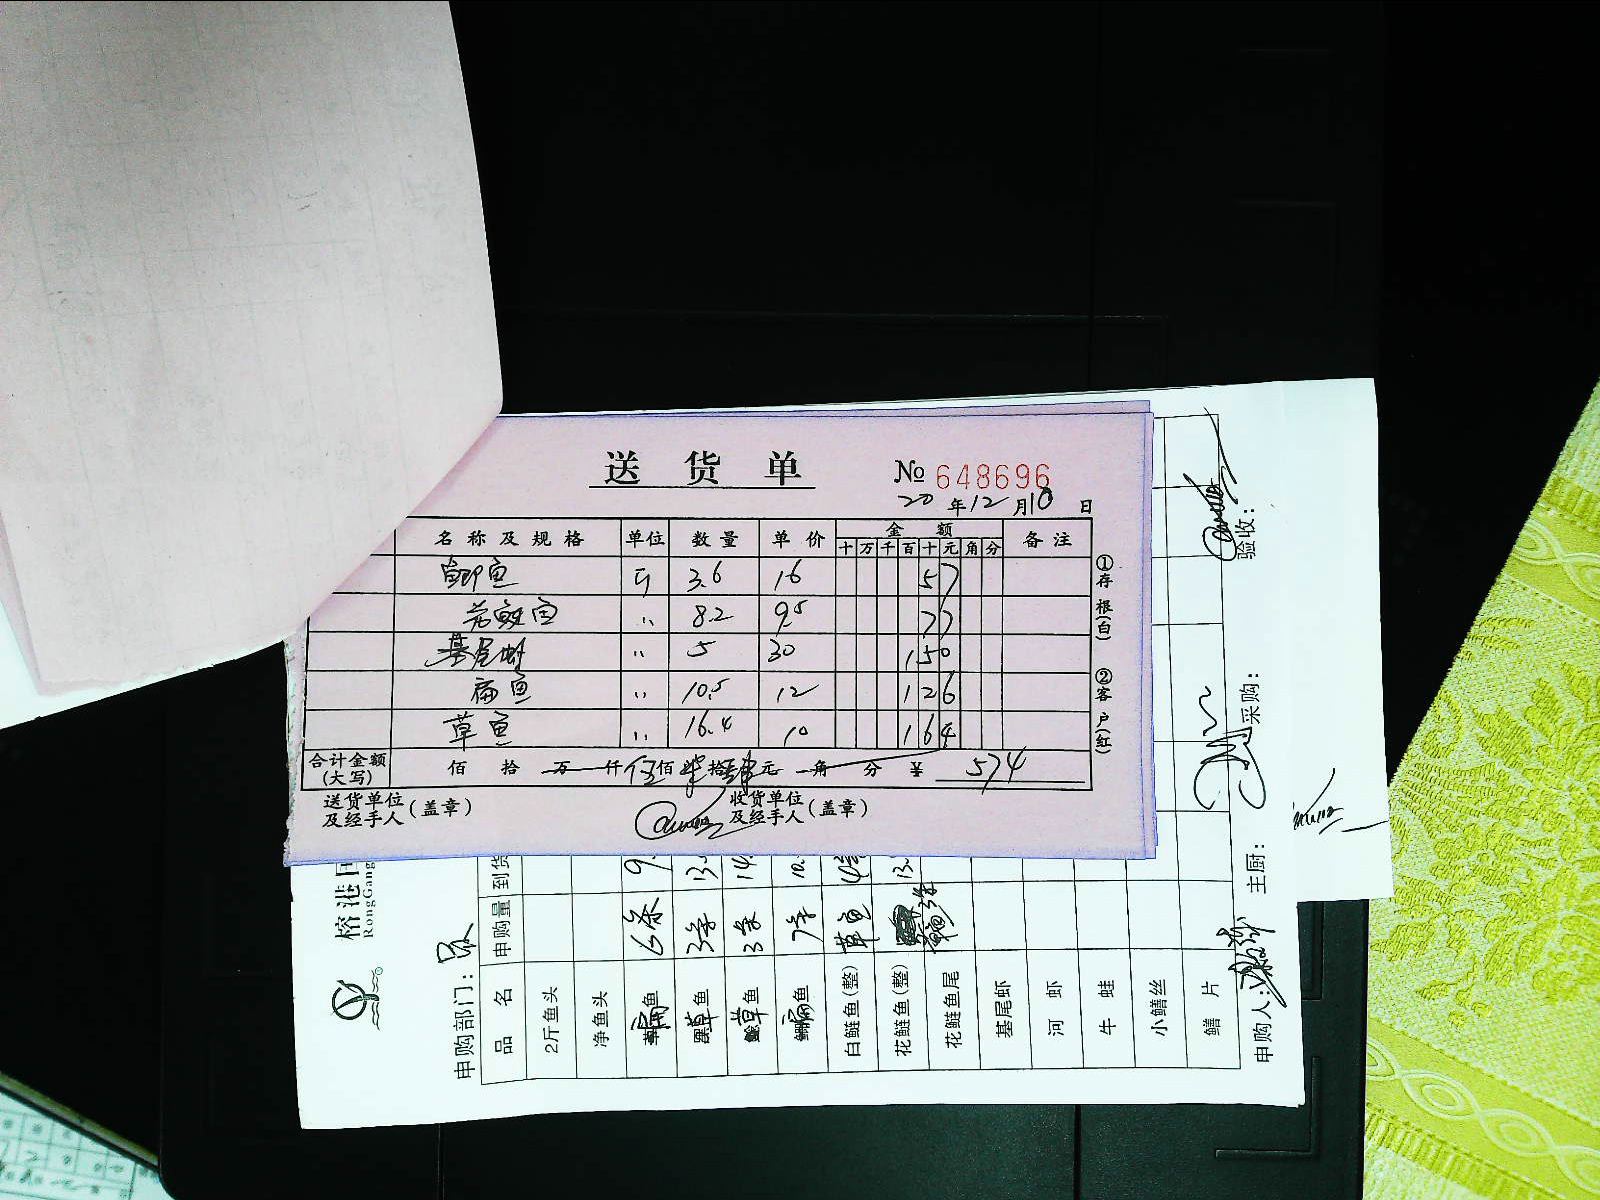 送货单
№ 648696
20年12月10日
名称及规格 单位 数量 单价 金额 备注
十 万 千 百 十 元 角 分
鲫鱼 斤 3.6 16 57
花鲢鱼 〃 8.2 9.5 77
基尾虾 〃 5 30 150
扁鱼 〃 10.5 12 126
草鱼 〃 16.4 10 164
合计金额(大写) 佰 拾 万 仟 伍佰柒拾肆元 角 分 ¥ 574
送货单位及经手人(盖章) 收货单位及经手人(盖章)
①存根(白)
②客户(红)
榕港
RongGang
申购部门:
品名 申购量 到货
2斤鱼头
净鱼头
扁鱼 6条 9.
草鱼 3条 13.
草鱼 3条 14.
鱼 7条 10.
白鲢鱼(整) 草鱼
花鲢鱼(整) 13.
花鲢鱼尾
基尾虾
河虾
牛蛙
小鳝丝
鳝片
申购人: 主厨: 采购: 验收: